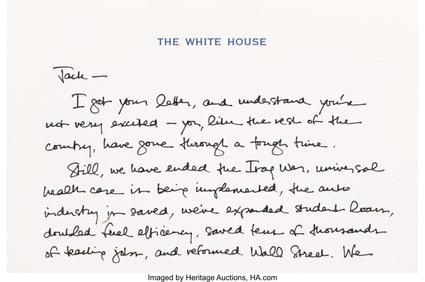 THE WHITE HOUSE
Jack —
I got your letter, and understand you're
not very excited — you, like the rest of the
country, have gone through a tough time.
Still, we have ended the Iraq War, universal
health care is being implemented, the auto
industry is saved, we've expanded student loans,
doubled fuel efficiency, saved tens of thousands
of teaching jobs, and reformed Wall Street. We
Imaged by Heritage Auctions, HA.com